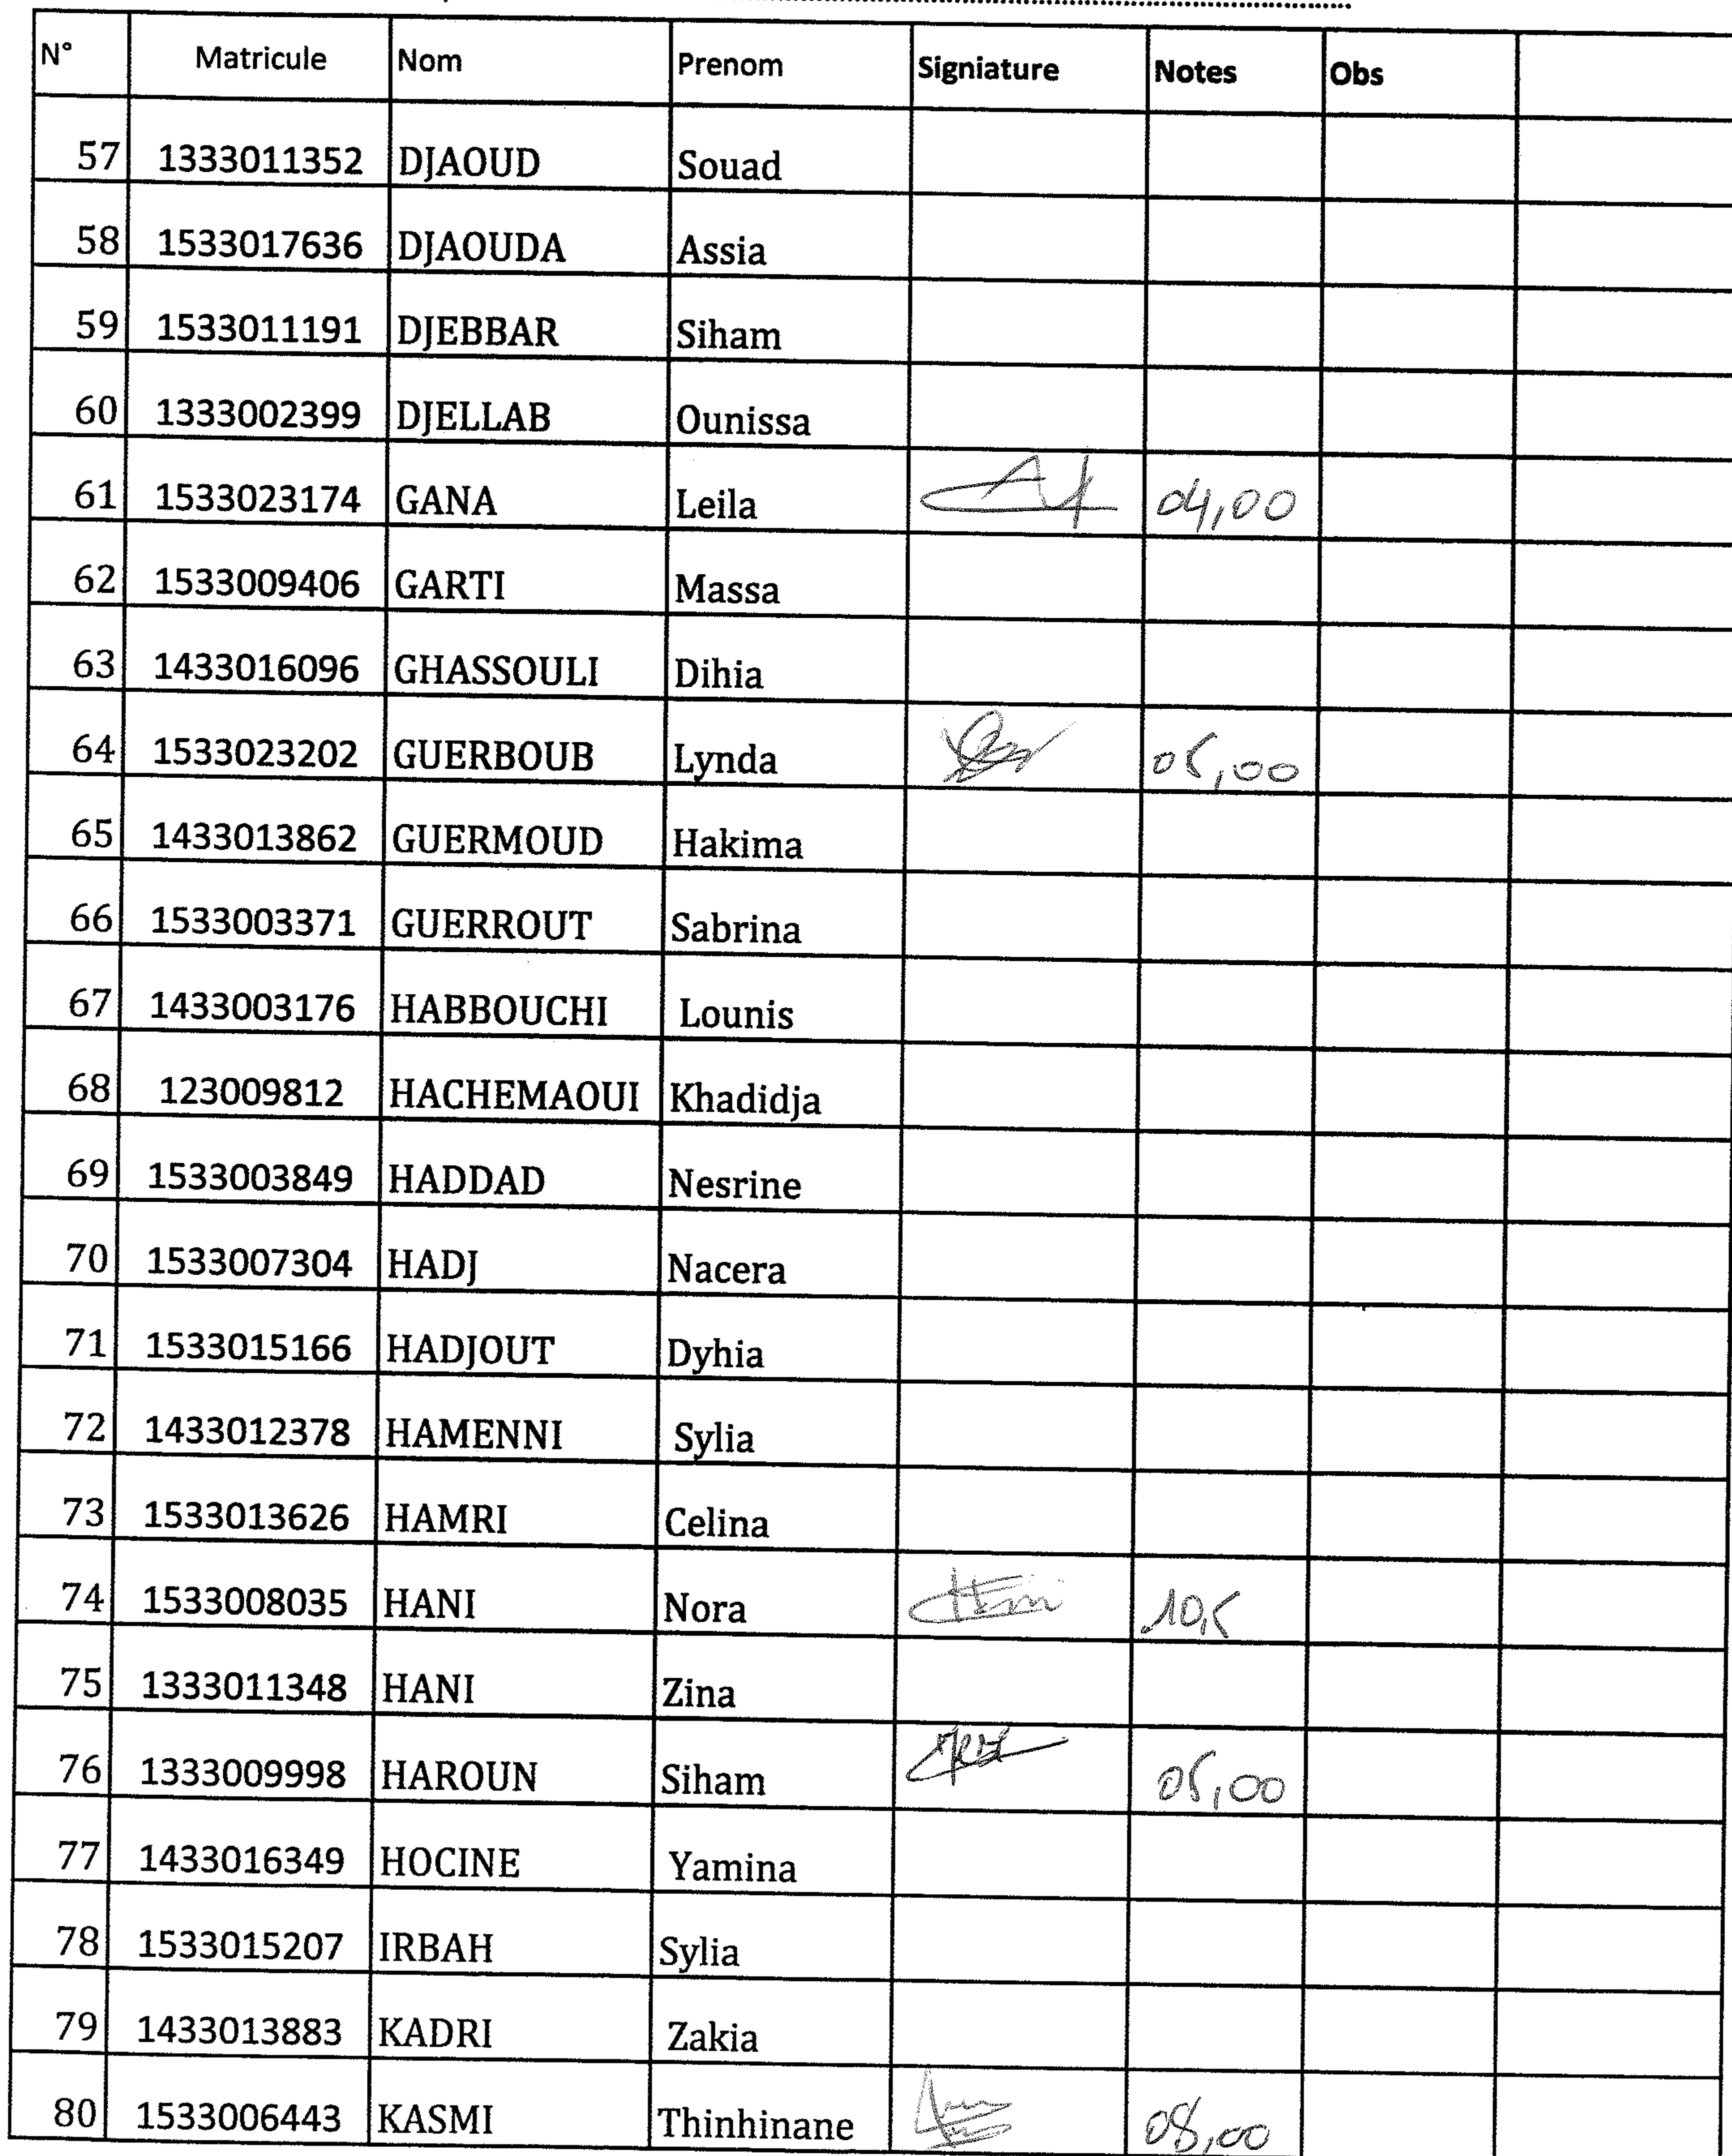 N° Matricule Nom Prenom Signiature Notes Obs
57 1333011352 DJAOUD Souad
58 1533017636 DJAOUDA Assia
59 1533011191 DJEBBAR Siham
60 1333002399 DJELLAB Ounissa
61 1533023174 GANA Leila 04,00
62 1533009406 GARTI Massa
63 1433016096 GHASSOULI Dihia
64 1533023202 GUERBOUB Lynda 05,00
65 1433013862 GUERMOUD Hakima
66 1533003371 GUERROUT Sabrina
67 1433003176 HABBOUCHI Lounis
68 123009812 HACHEMAOUI Khadidja
69 1533003849 HADDAD Nesrine
70 1533007304 HADJ Nacera
71 1533015166 HADJOUT Dyhia
72 1433012378 HAMENNI Sylia
73 1533013626 HAMRI Celina
74 1533008035 HANI Nora 10,5
75 1333011348 HANI Zina
76 1333009998 HAROUN Siham 05,00
77 1433016349 HOCINE Yamina
78 1533015207 IRBAH Sylia
79 1433013883 KADRI Zakia
80 1533006443 KASMI Thinhinane 08,00